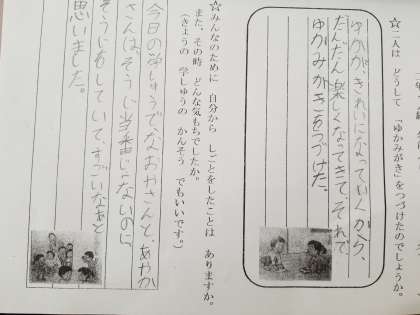 ☆二人は どうして 「ゆかみがき」をつづけたのでしょうか。
ゆかが、きれいになっていくから、
だんだん楽しくなってきて、それで
ゆかみがきをつづけた。
☆みんなのために 自分から しごとをしたことは ありますか。
また、その時 どんな気もちでしたか。
（きょうの 学しゅうの かんそう でもいいです。）
今日の学しゅうで、なおやさんと、あやか
さんは、そうじ当番じゃないのに、
そうじをしていて、すごいなあと
思いました。